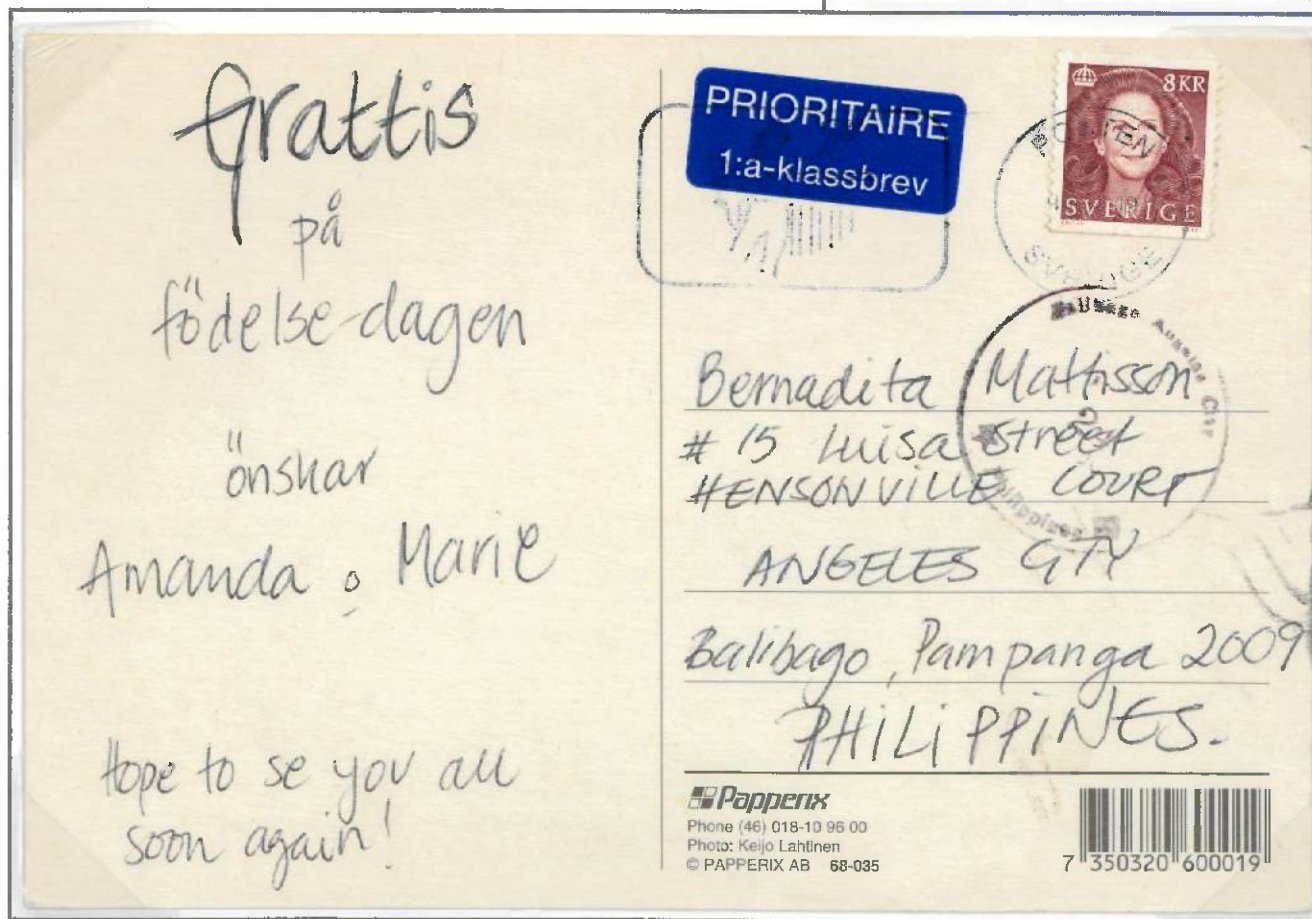 Grattis
på
födelse-dagen
önskar
Amanda o Marie
Hope to se you all
soon again!
PRIORITAIRE
1:a-klassbrev
8KR
SVERIGE
POSTEN
SVERIGE
Bernadita Mattisson
# 15 Luisa Street
HENSONVILLE COURT
ANGELES CITY
Balibago, Pampanga 2009
PHILIPPINES.
Angeles City
Philippines
Papperix
Phone (46) 018-10 96 00
Photo: Keijo Lahtinen
© PAPPERIX AB 68-035
7 350320 600019